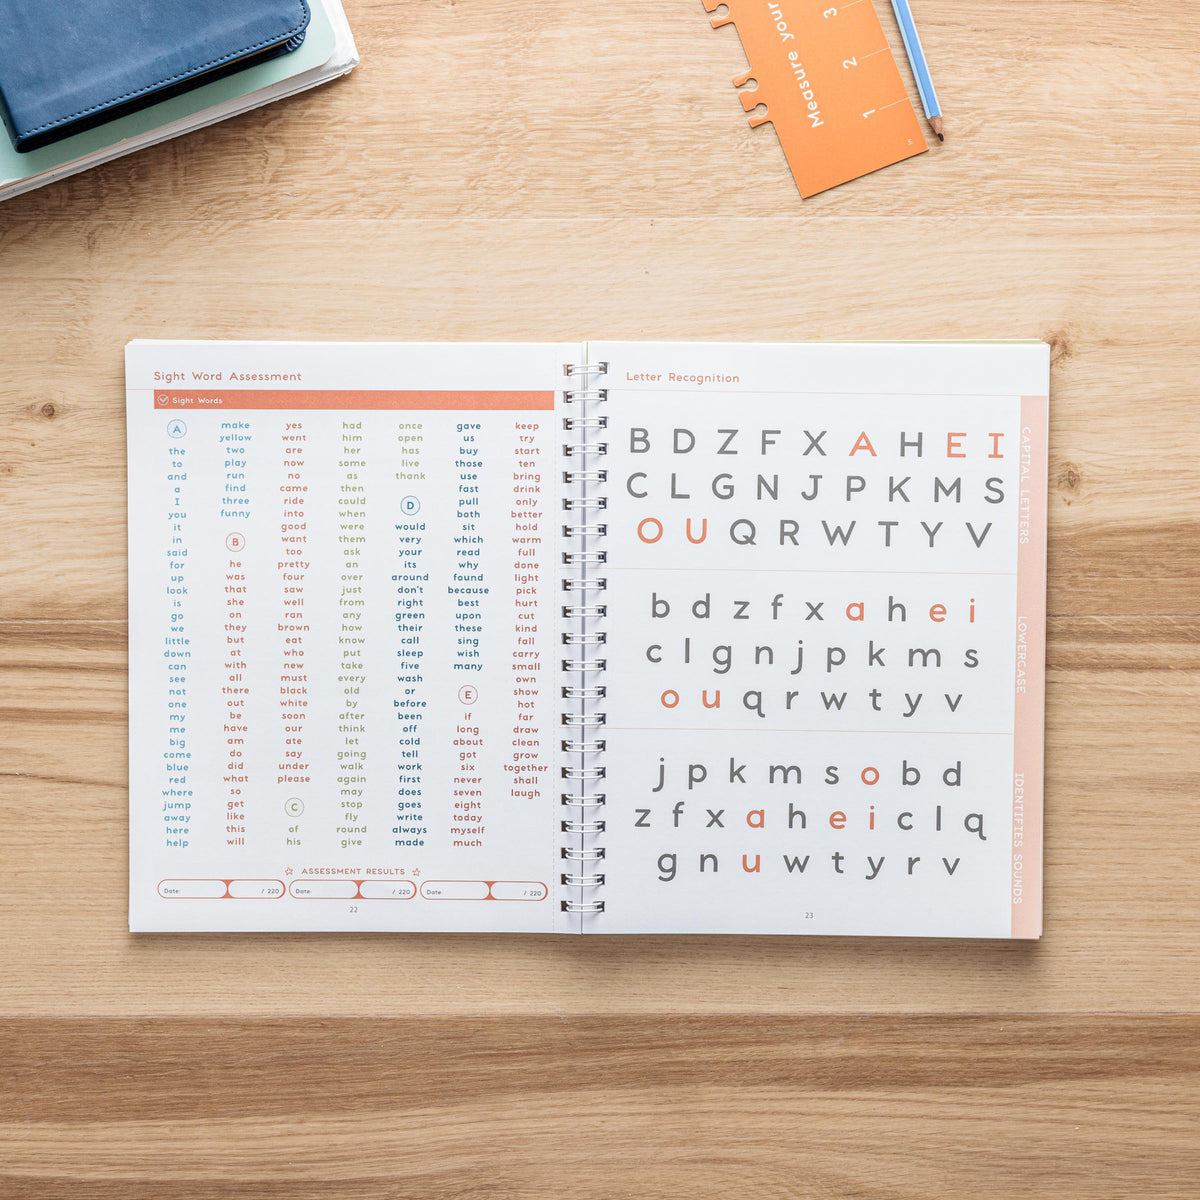 Measure your
1
2
3
Sight Word Assessment
Sight Words
A
the
to
and
a
I
you
it
in
said
for
up
look
is
go
we
little
down
can
see
not
one
my
me
big
come
blue
red
where
jump
away
here
help
make
yellow
two
play
run
find
three
funny
B
he
was
that
she
on
they
but
at
with
all
there
out
be
have
am
do
did
what
so
get
like
this
will
yes
went
are
now
no
came
ride
into
good
want
too
pretty
four
saw
well
ran
brown
eat
who
new
must
black
white
soon
our
ate
say
under
please
C
of
his
had
him
her
some
as
then
could
when
were
them
ask
an
over
just
from
any
how
know
put
take
every
old
by
after
think
let
going
walk
again
may
stop
fly
round
give
once
open
has
live
thank
D
would
very
your
its
around
don't
right
green
their
call
sleep
five
wash
or
before
been
off
cold
tell
work
first
does
goes
write
always
made
gave
us
buy
those
use
fast
pull
both
sit
which
read
why
found
because
best
upon
these
sing
wish
many
E
if
long
about
got
six
never
seven
eight
today
myself
much
keep
try
start
ten
bring
drink
only
better
hold
warm
full
done
light
pick
hurt
cut
kind
fall
carry
small
own
show
hot
far
draw
clean
grow
together
shall
laugh
ASSESSMENT RESULTS
Date: / 220 Date: / 220 Date: / 220
22
Letter Recognition
B D Z F X A H E I
C L G N J P K M S
O U Q R W T Y V
CAPITAL LETTERS
b d z f x a h e i
c l g n j p k m s
o u q r w t y v
LOWERCASE
j p k m s o b d
z f x a h e i c l q
g n u w t y r v
IDENTIFIES SOUNDS
23